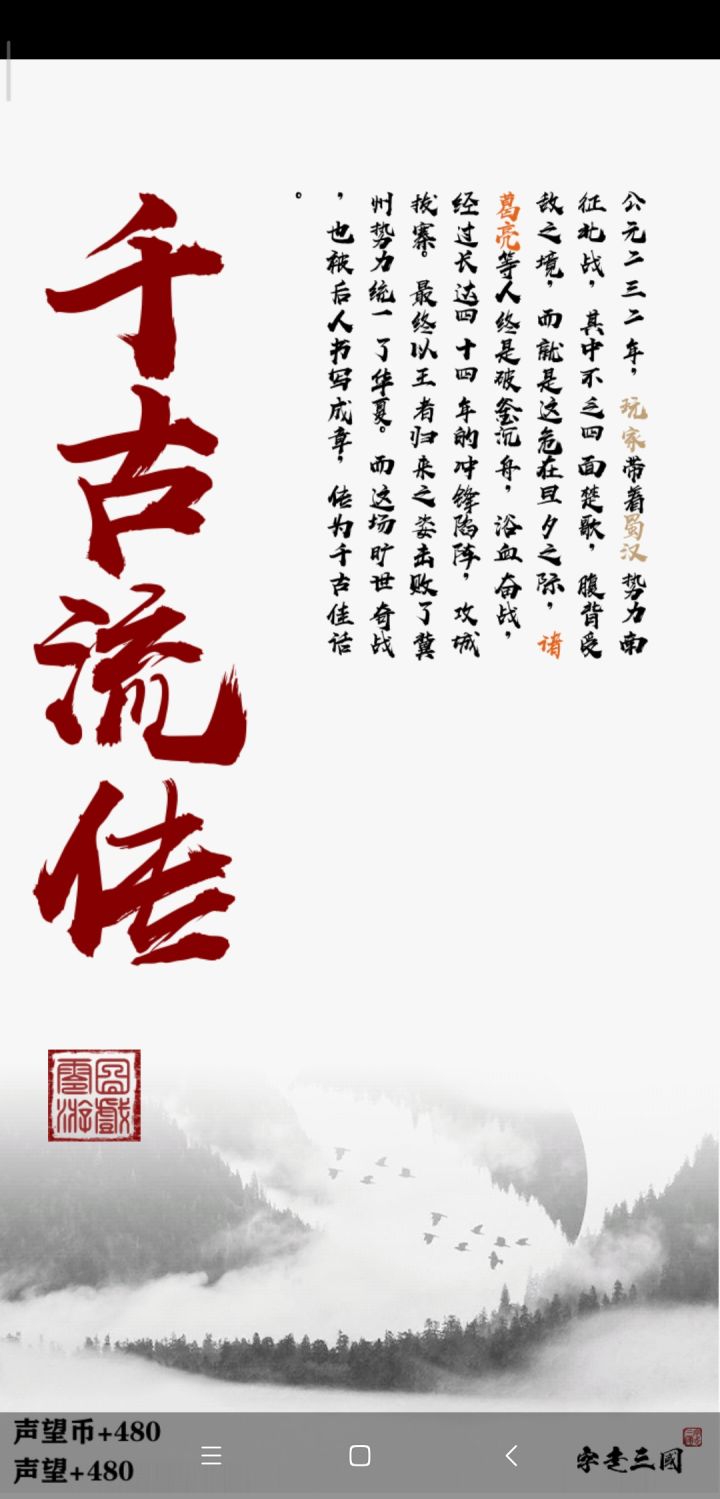 公元二三二年，玩家带着蜀汉势力南
征北战，其中不乏四面楚歌，腹背受
敌之境，而就是这危在旦夕之际，诸
葛亮等人终是破釜沉舟，浴血奋战，
经过长达四十四年的冲锋陷阵，攻城
拔寨。最终以王者归来之姿击败了冀
州势力统一了华夏。而这场旷世奇战
，也被后人书写成章，传为千古佳话
。
千古流传
声望币+480
声望+480
字走三國